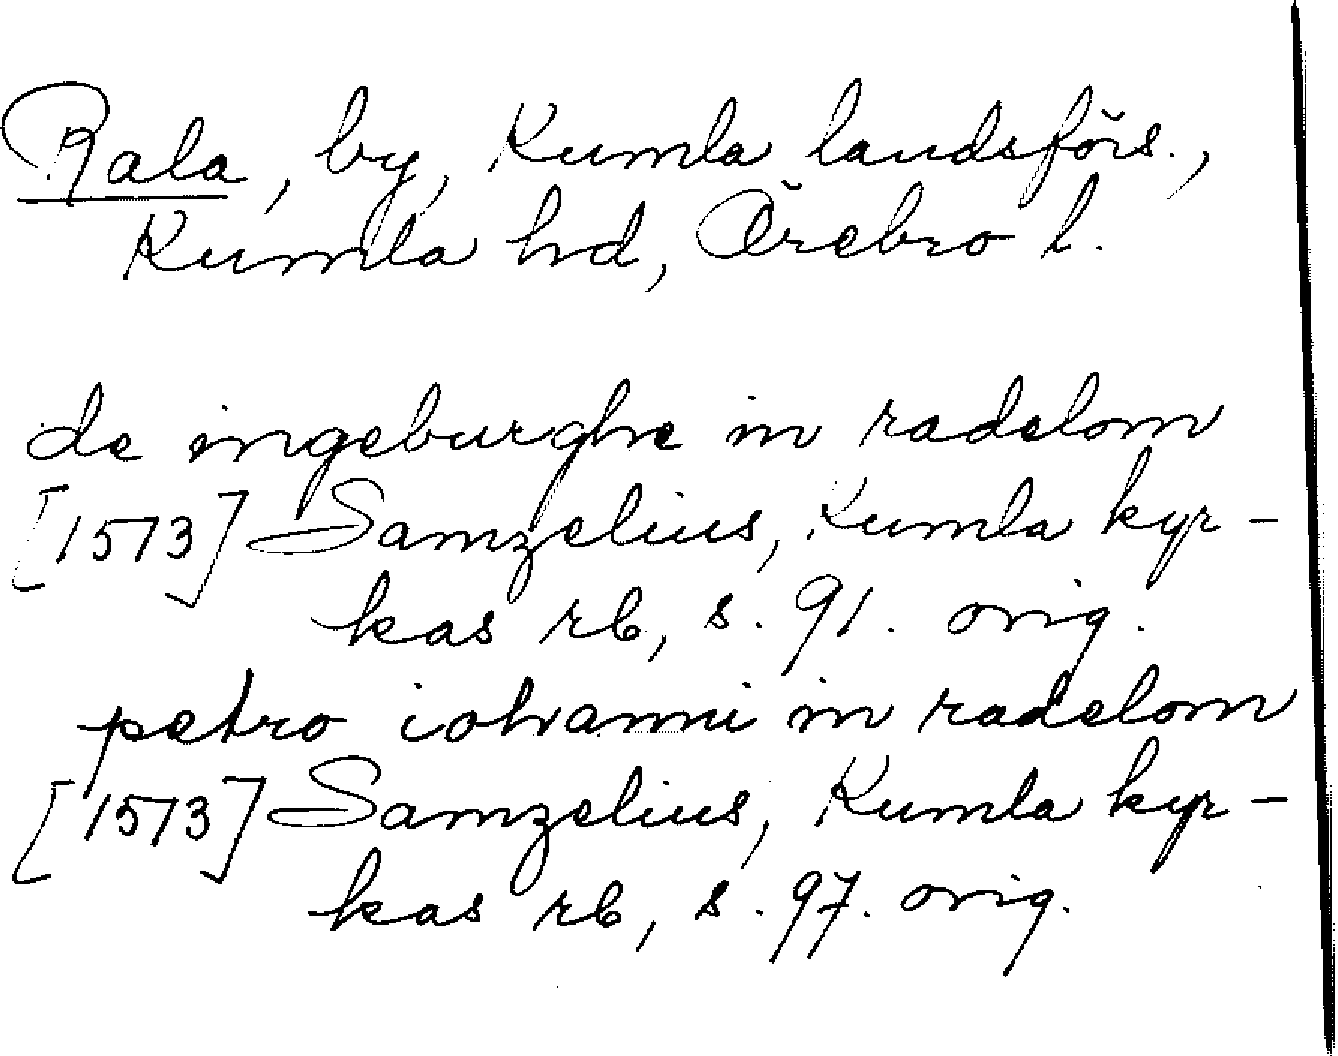 Rala, by, Kumla landsförs.,
Kumla hd, Örebro l.
de ingeburghe in radelom
[1573] Samzelius, Kumla kyr-
kas rb, s. 91. orig.
petro iohanni in radelom
[1573] Samzelius, Kumla kyr-
kas rb, s. 97. orig.